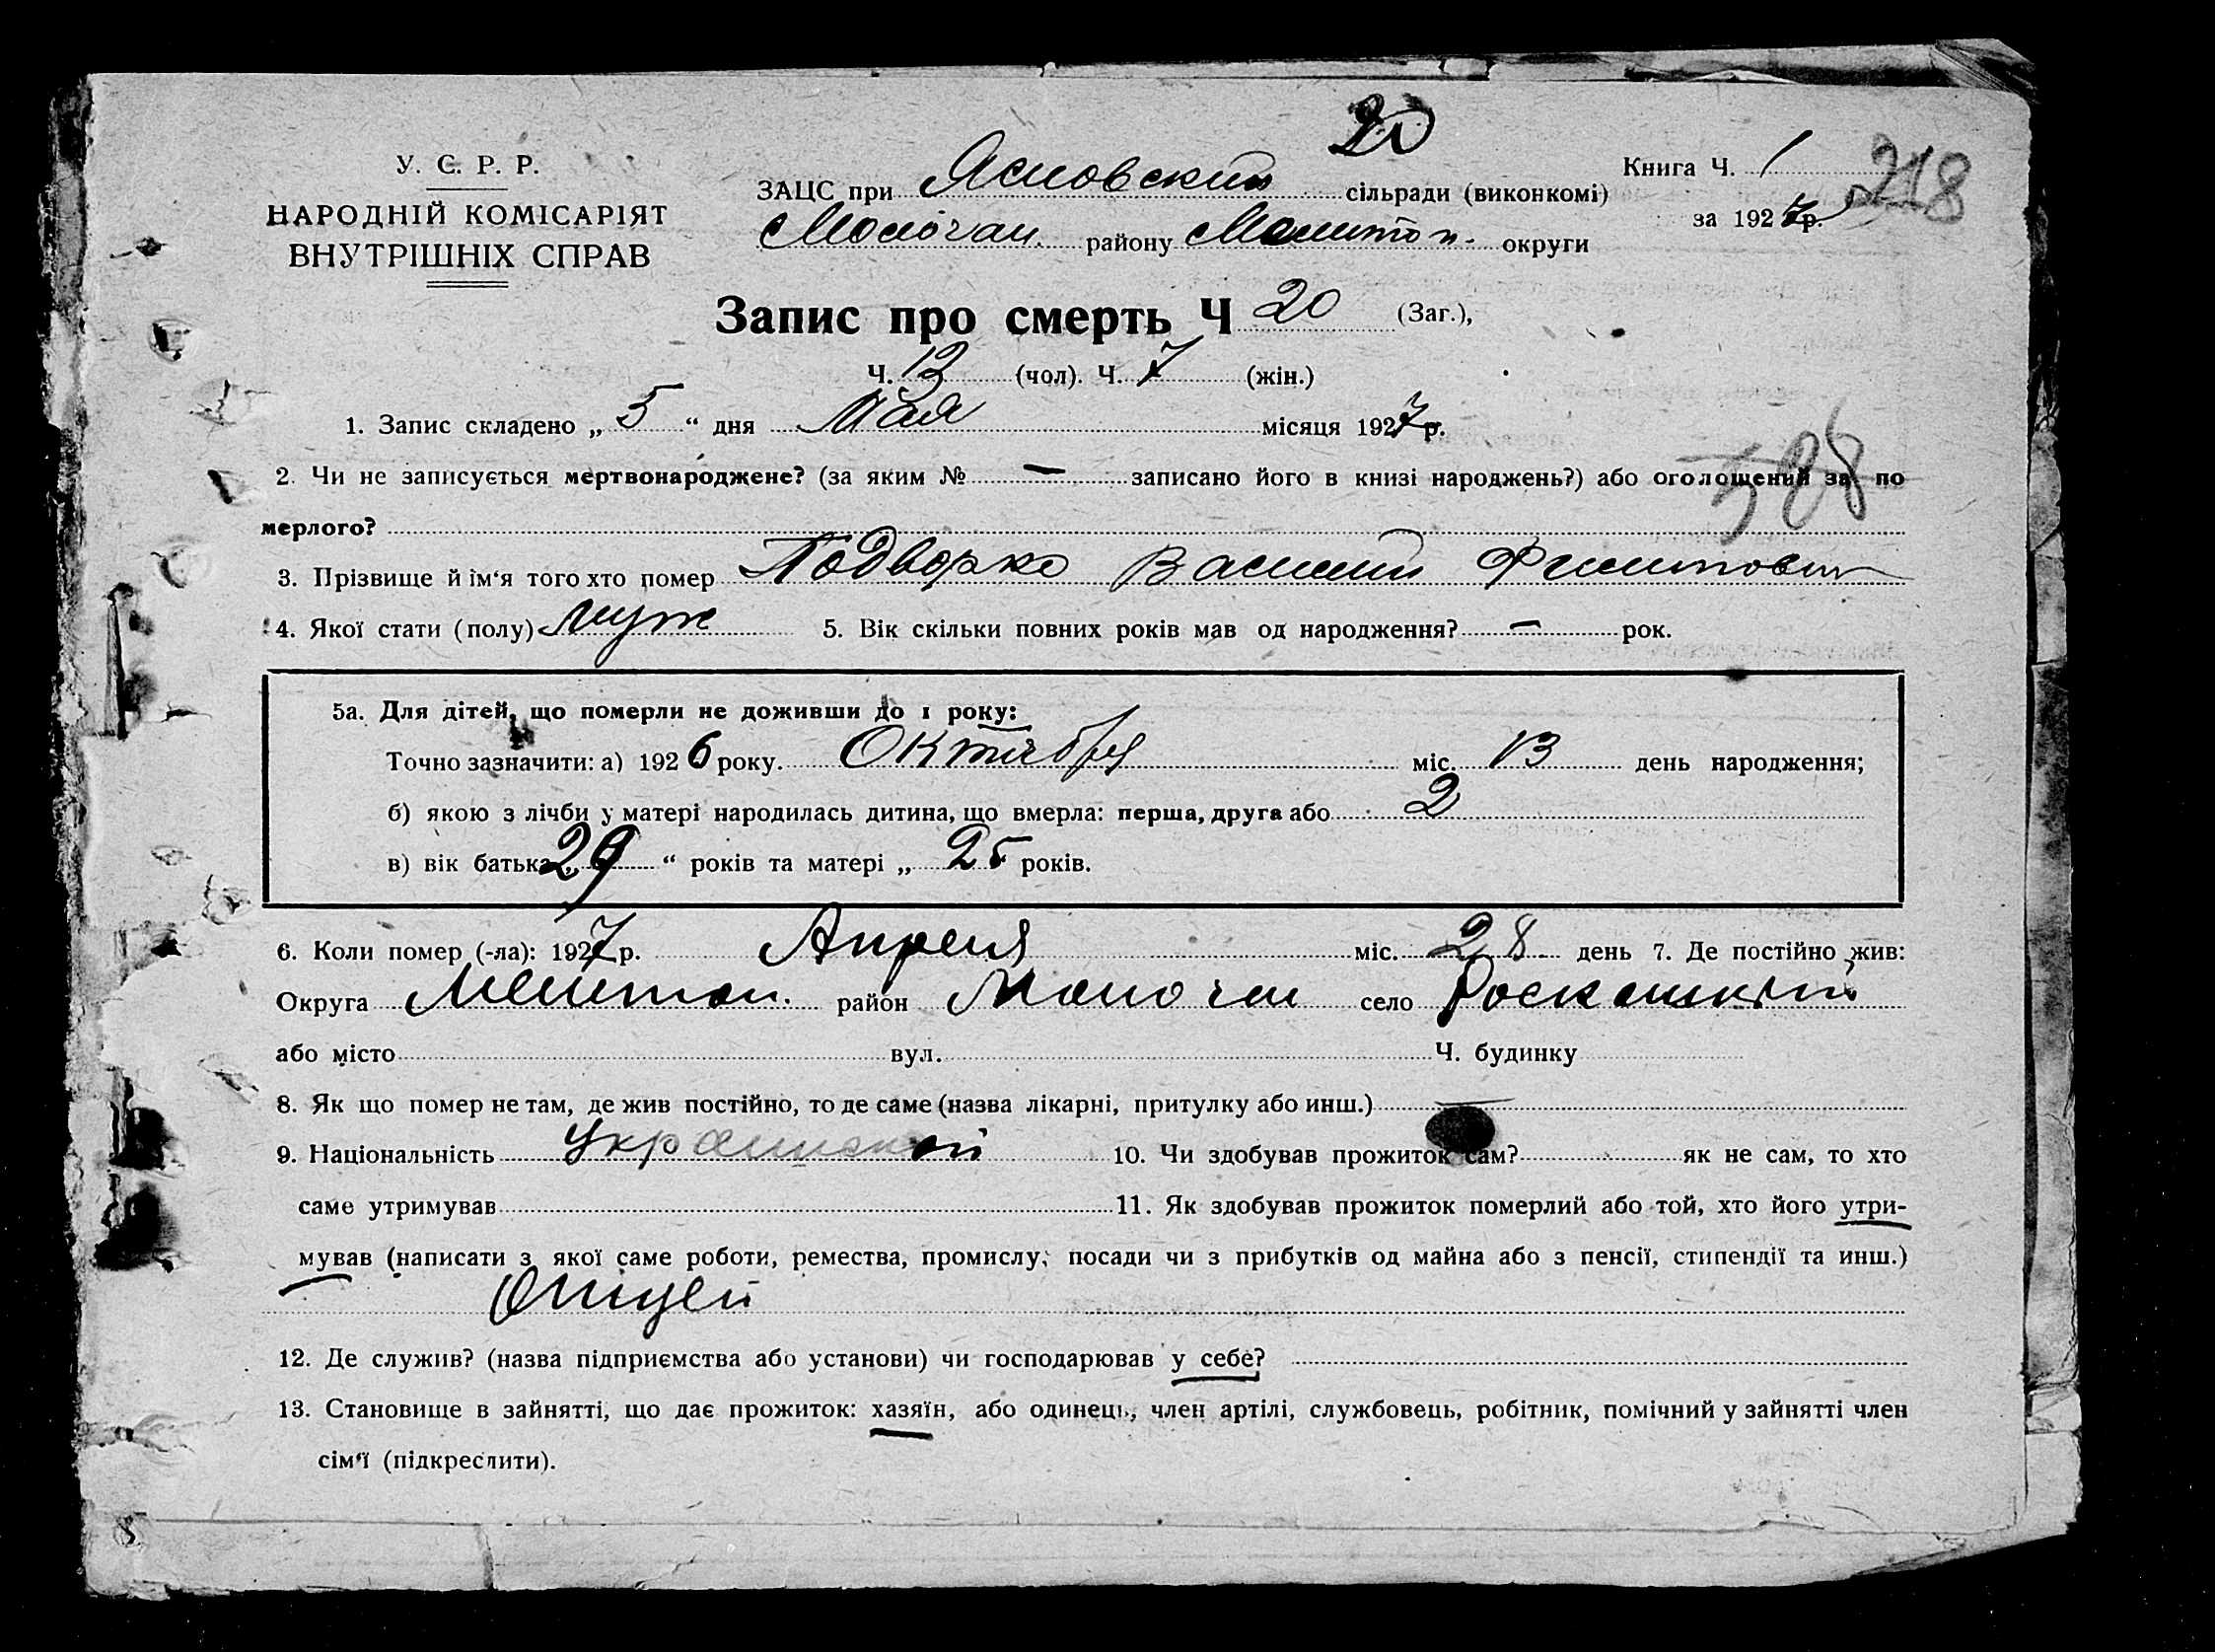 20
У. С. Р. Р.
НАРОДНІЙ КОМІСАРІЯТ
ВНУТРІШНІХ СПРАВ
ЗАЦС при Ясновский сільради (виконкомі)
Молочан. району Мелитоп. округи
Книга Ч. 1
за 1927 р.
218
Запис про смерть Ч 20 (Заг.),
Ч. 13 (чол). Ч. 7 (жін.)
1. Запис складено „ 5 “ дня Мая місяця 1927 р.
2. Чи не записується мертвонароджене? (за яким № — записано його в книзі народжень?) або оголошений за по
мерлого?
3. Прізвище й ім‘я того хто помер Подворко Василий Филиппович
4. Якої стати (полу) муж 5. Вік скільки повних років мав од народження? — рок.
5а. Для дітей, що померли не доживши до 1 року:
Точно зазначити: а) 1926 року. Октября міс. 13 день народження;
б) якою з лічби у матері народилась дитина, що вмерла: перша, друга або 2
в) вік батька „ 29 “ років та матері „ 25 “ років.
6. Коли помер (-ла): 1927 р. Апреля міс. 28 день 7. Де постійно жив:
Округа Мелитоп. район Молочан село
або місто вул. Ч. будинку
8. Як що помер не там, де жив постійно, то де саме (назва лікарні, притулку або инш.) —
9. Національність Украинский 10. Чи здобував прожиток сам? як не сам, то хто
саме утримував 11. Як здобував прожиток померлий або той, хто його утри-
мував (написати з якої саме роботи, ремества, промислу, посади чи з прибутків од майна або з пенсії, стипендії та инш.)
12. Де служив? (назва підприємства або установи) чи господарював у себе?
13. Становище в зайнятті, що дає прожиток: хазяїн, або одинець, член артілі, службовець, робітник, помічний у зайнятті член
сім‘ї (підкреслити).